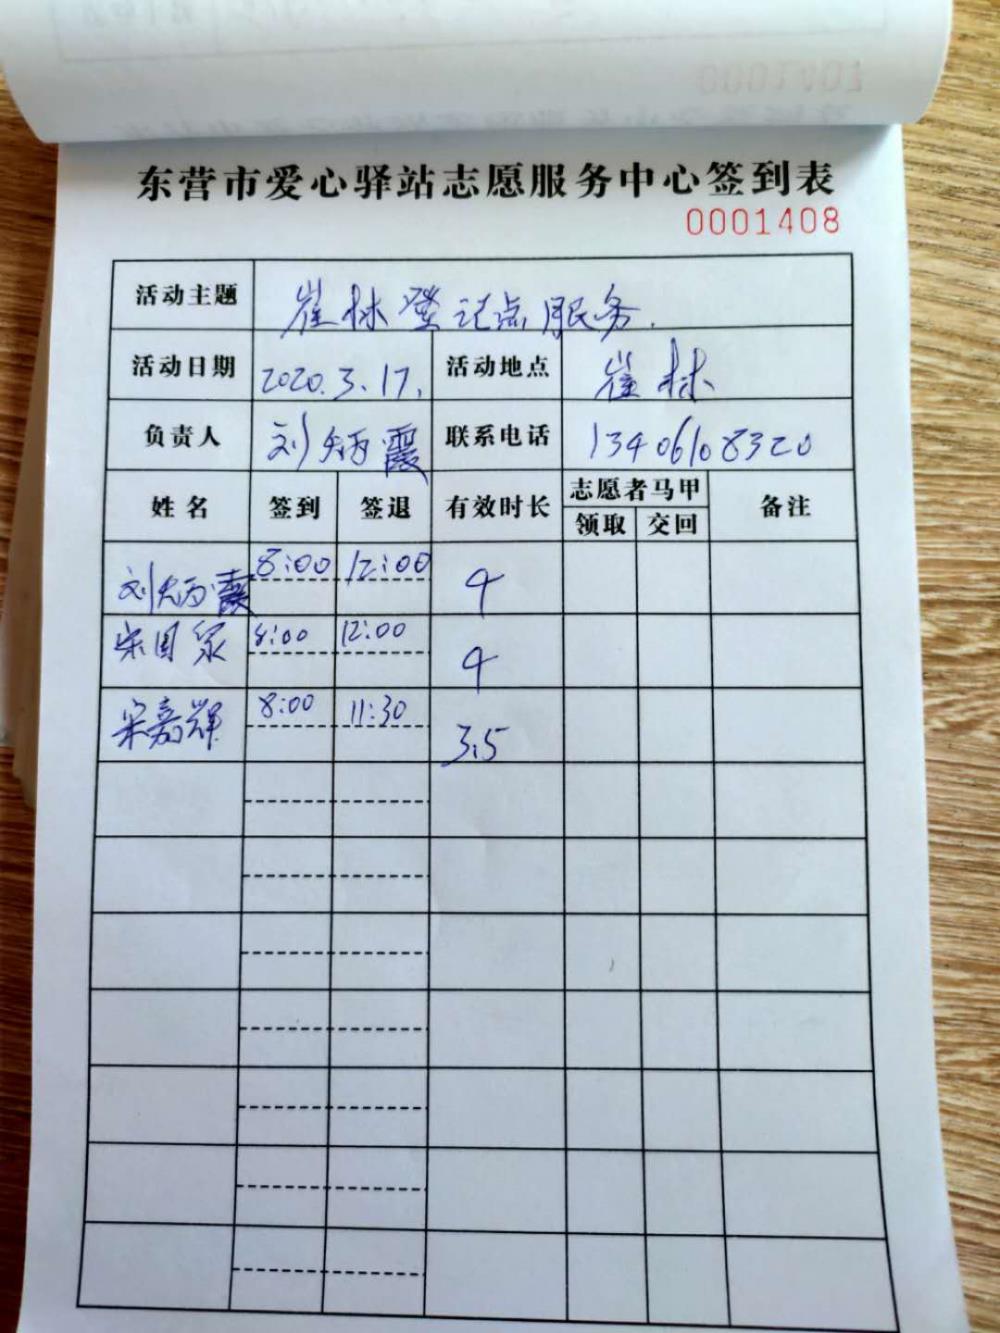 东营市爱心驿站志愿服务中心签到表
0001408
活动主题 崔林登记点服务.
活动日期 2020.3.17. 活动地点 崔林
负责人 刘炳霞 联系电话 13406108320
姓名 签到 签退 有效时长 志愿者马甲 备注
领取 交回
刘炳霞 8:00 12:00 4
宋国家 8:00 12:00 4
宋嘉辉 8:00 11:30 3.5